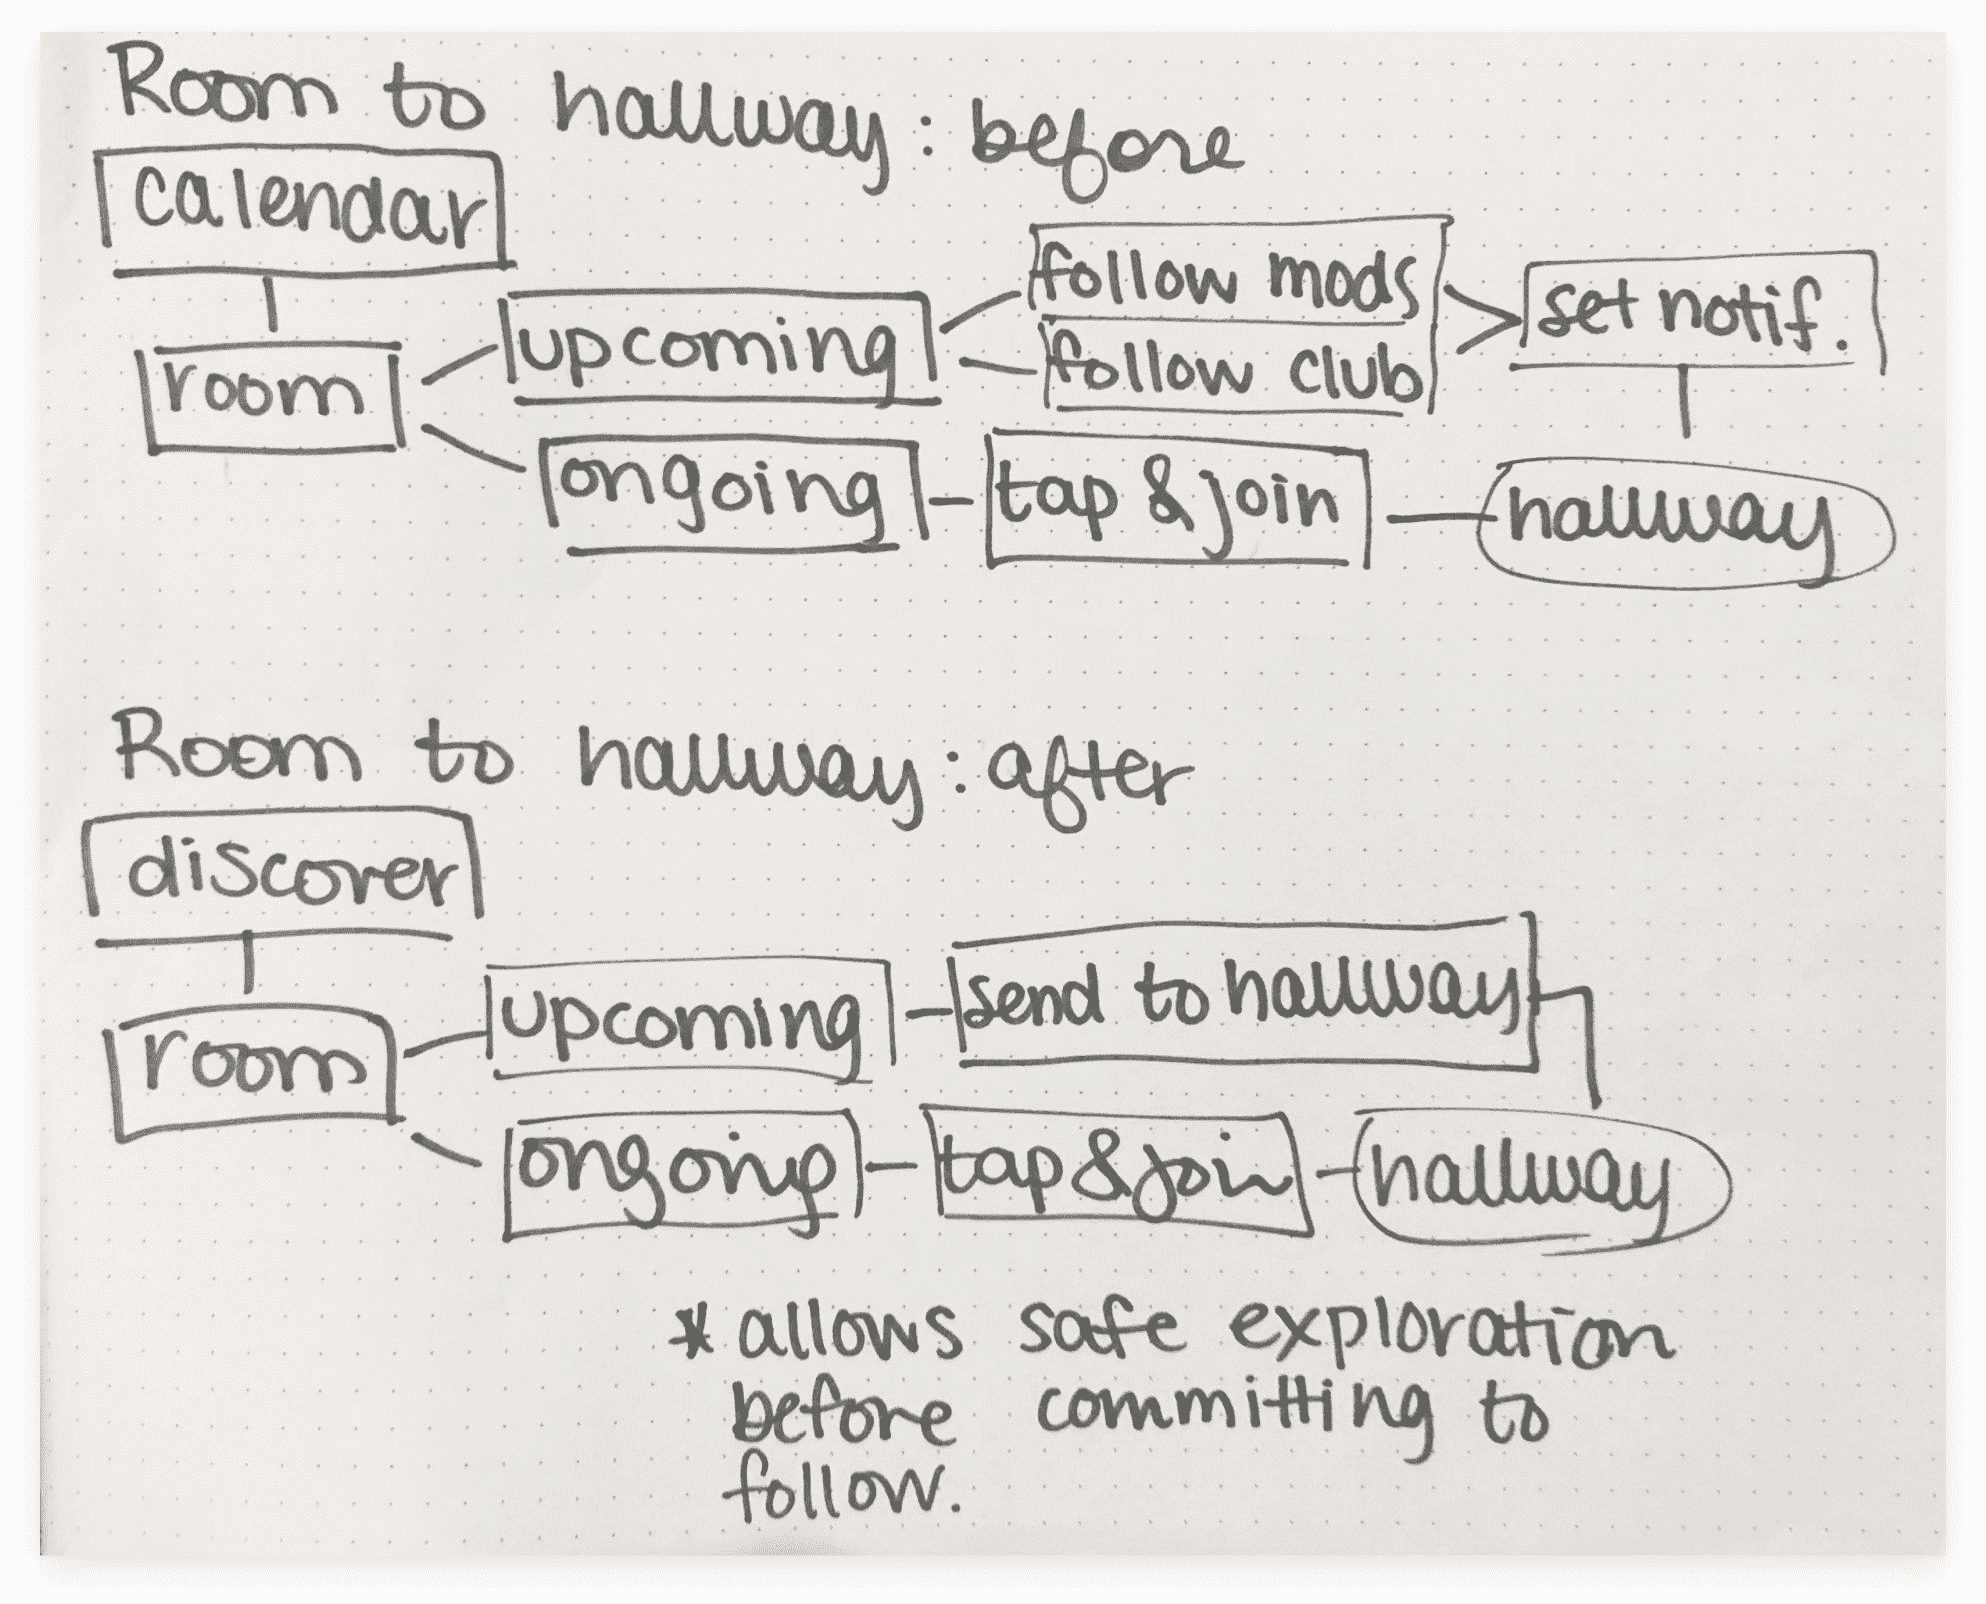 Room to hallway: before
calendar
follow mods
set notif.
upcoming
room
follow club
ongoing
tap & join
hallway
Room to hallway: after
discover
upcoming
send to hallway
room
ongoing
tap & join
hallway
* allows safe exploration
before committing to
follow.